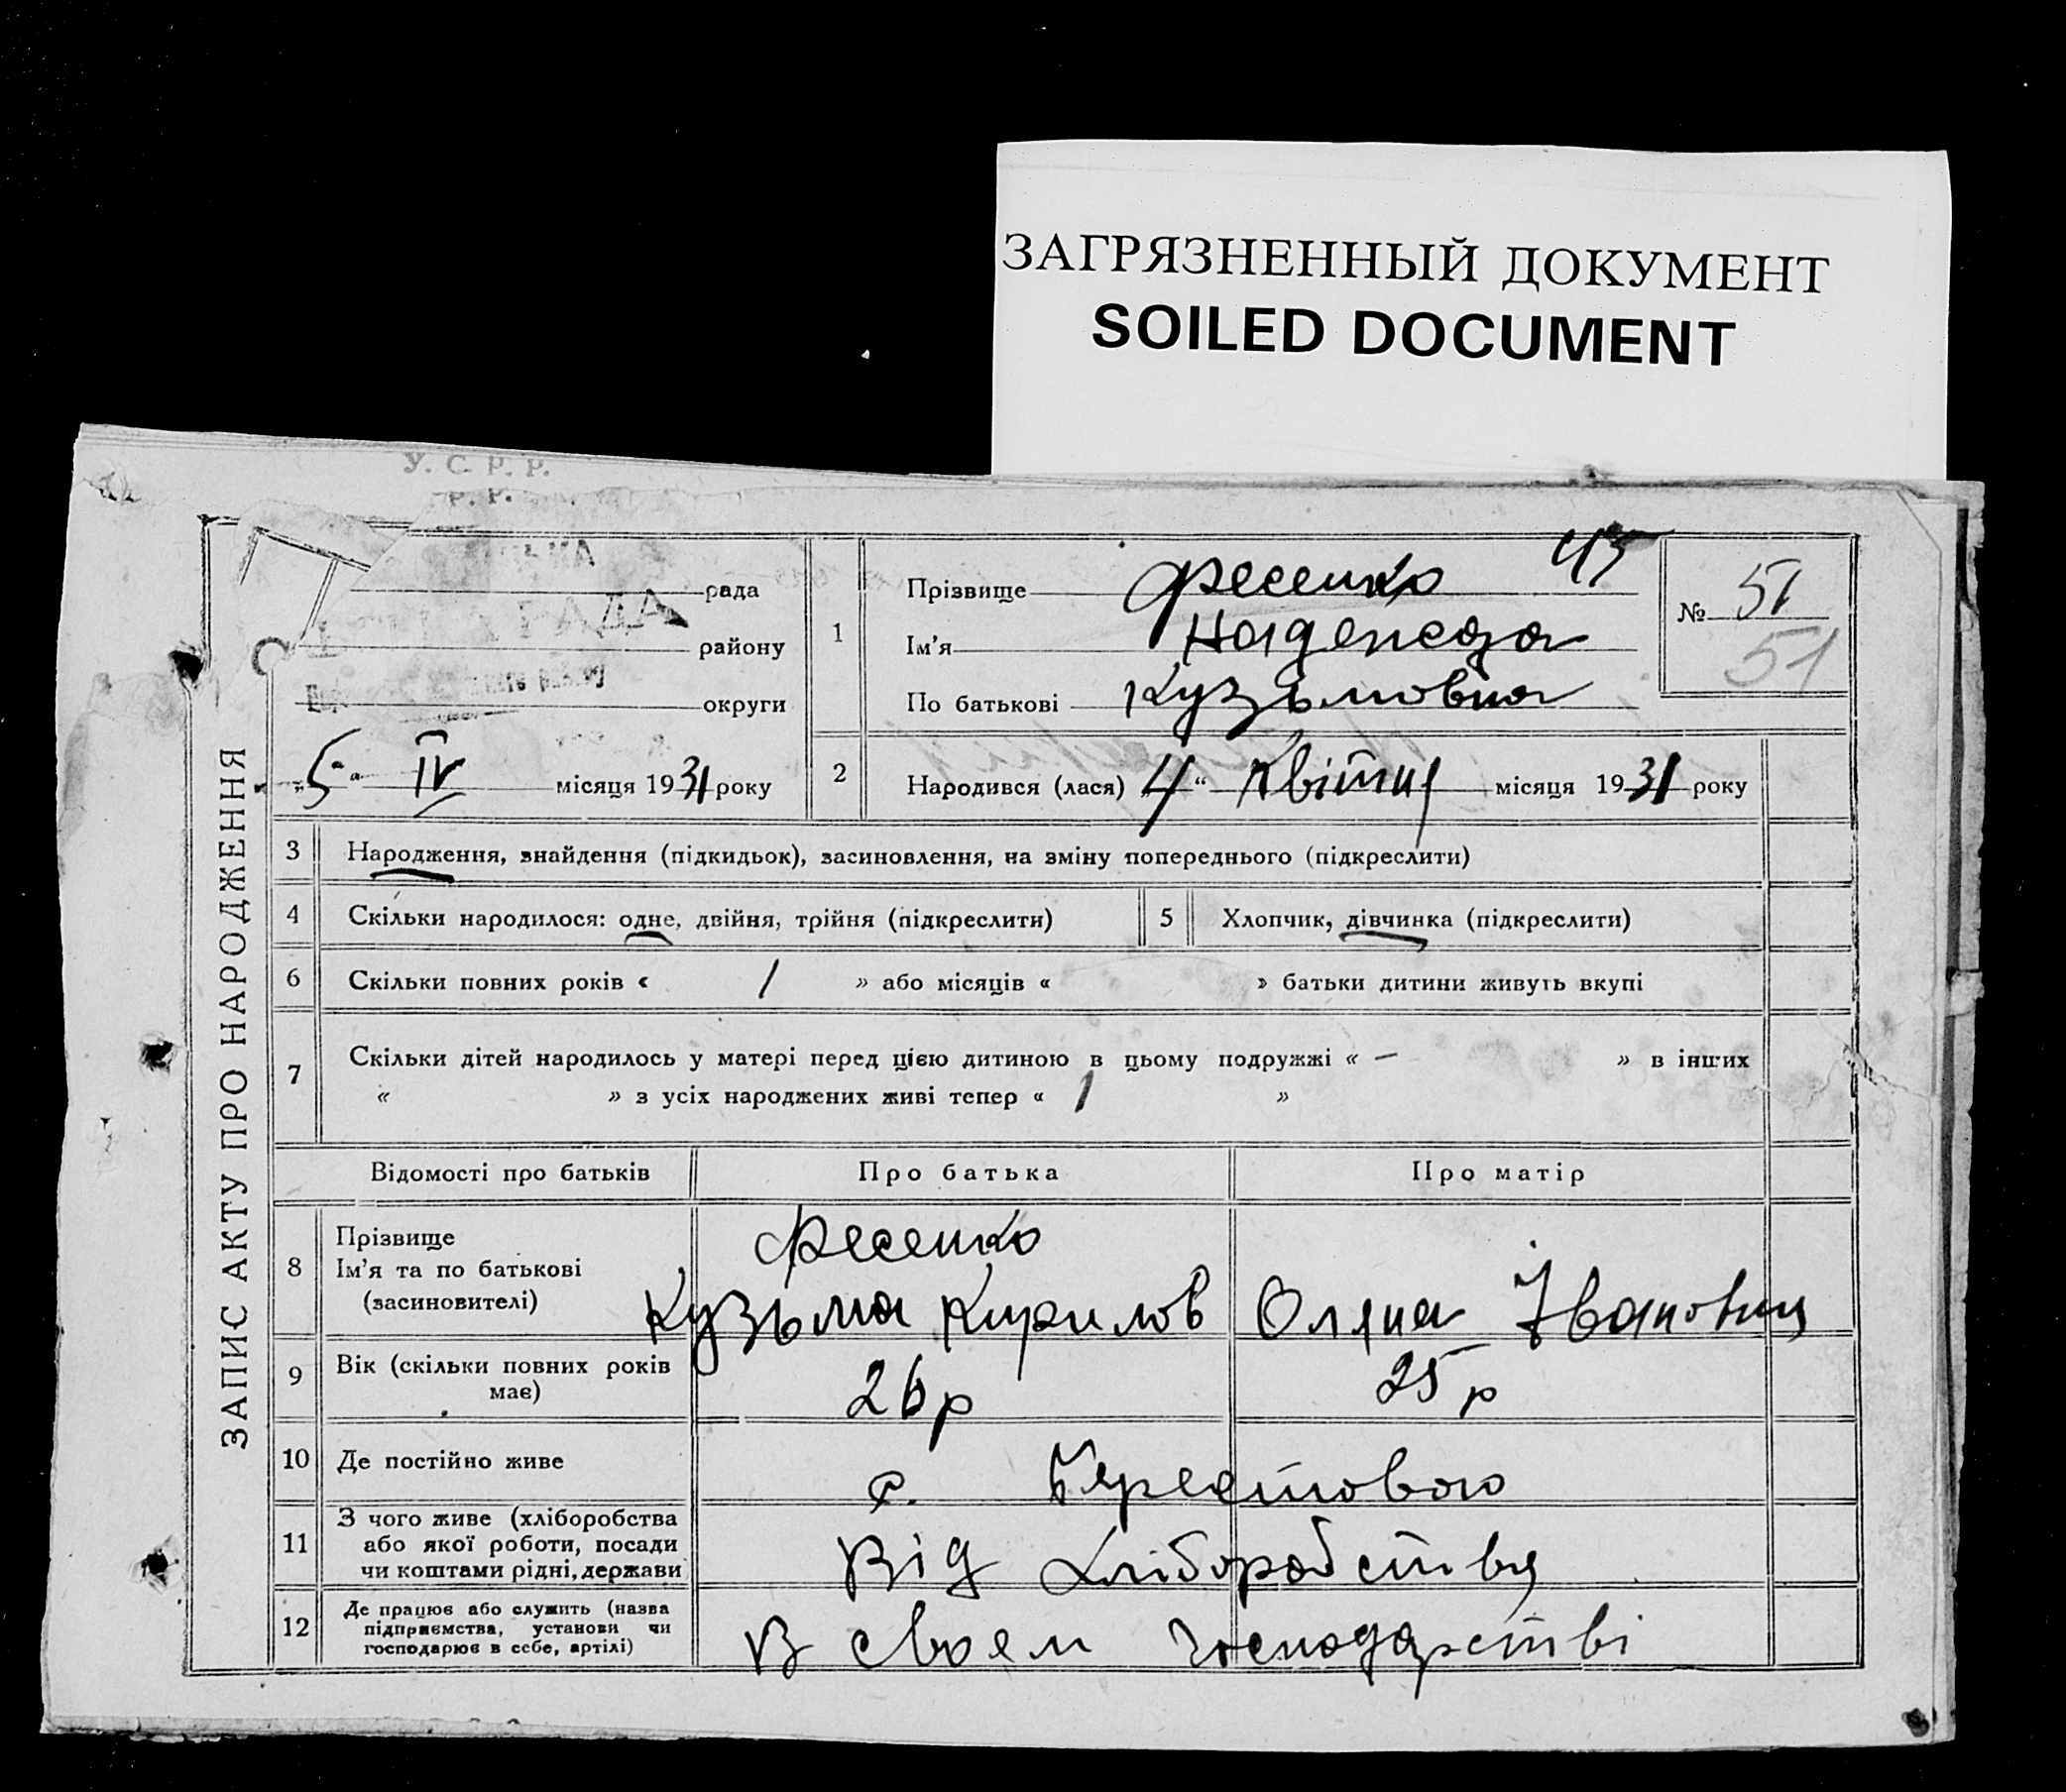 ЗАГРЯЗНЕННЫЙ ДОКУМЕНТ
SOILED DOCUMENT
У. С. Р. Р.
Р. Р.
ЗАПИС АКТУ ПРО НАРОДЖЕННЯ
рада
РАДА
району
округи
„5“ IV місяця 1931 року
1
Прізвище Фесенко 45
Ім'я Надежда
По батькові Кузьмовна
№ 51
51
2
Народився (лася) „4“ Квітня місяця 1931 року
3 Народження, знайдення (підкидьок), засиновлення, на зміну попереднього (підкреслити)
4 Скільки народилося: одне, двійня, трійня (підкреслити)
5 Хлопчик, дівчинка (підкреслити)
6 Скільки повних років « 1 » або місяців « » батьки дитини живуть вкупі
7 Скільки дітей народилось у матері перед цією дитиною в цьому подружжі « — » в інших
« » з усіх народжених живі тепер « 1 »
Відомості про батьків Про батька Про матір
8 Прізвище
Ім'я та по батькові
(засиновителі)
Фесенко
Кузьма Кирилов Оляна Івановна
9 Вік (скільки повних років
має)
26 р 25 р
10 Де постійно живе
с. Берестовою
11 З чого живе (хліборобства
або якої роботи, посади
чи коштами рідні, держави
Від хліборобства
12 Де працює або служить (назва
підприємства, установи чи
господарює в себе, артілі)
В своем господарстві